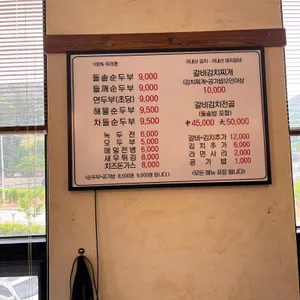 100% 우리콩
돌솥순두부 9,000
들깨순두부 9,000
연두부(초당) 9,000
해물순두부 9,500
차돌순두부 9,500
녹두전 6,000
모두부 5,000
메밀전병 6,000
새우튀김 8,000
치즈돈가스 8,000
<순두부+공기밥 8,500원 9,000원 입니다.>
국내산 김치 · 국내산 돼지갈비
갈비김치찌개
(김치찌개+공기밥)2인이상
10,000
갈비김치전골
(돌솥밥 포함)
中45,000 大50,000
갈비+김치추가 12,000
김치추가 6,000
라면사리 2,000
공기밥 1,000
<모든 메뉴 포장 됩니다>